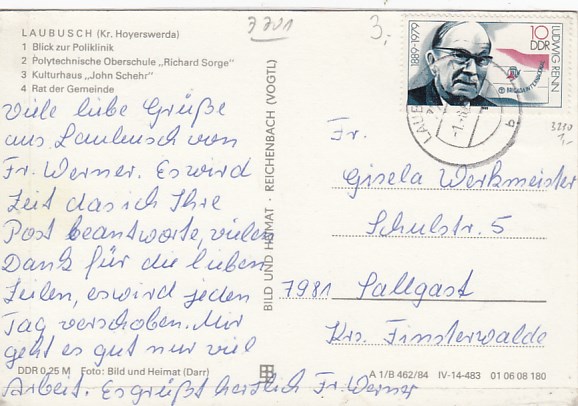 LAUBUSCH (Kr. Hoyerswerda)
1 Blick zur Poliklinik
2 Polytechnische Oberschule „Richard Sorge"
3 Kulturhaus „John Schehr"
4 Rat der Gemeinde
3,-
1889-1979
10
DDR
LUDWIG RENN
LAUB
b
3,-
Viele liebe Grüße
aus Laubusch von
Fr. Werner. Es wird
Zeit das ich Ihre
Post beantworte, vielen
Dank für die lieben
Zeilen, es wird jeden
Tag verschoben. Mir
geht es gut nur viel
Arbeit. Es grüßt herzlich Fr. Werner
BILD UND HEIMAT · REICHENBACH (VOGTL)
Fr.
Gisela Werkmeister
Schulstr. 5
7981 Sallgast
Krs. Finsterwalde
DDR 0,25 M Foto: Bild und Heimat (Darr)
A 1/B 462/84 IV-14-483 01 06 08 180